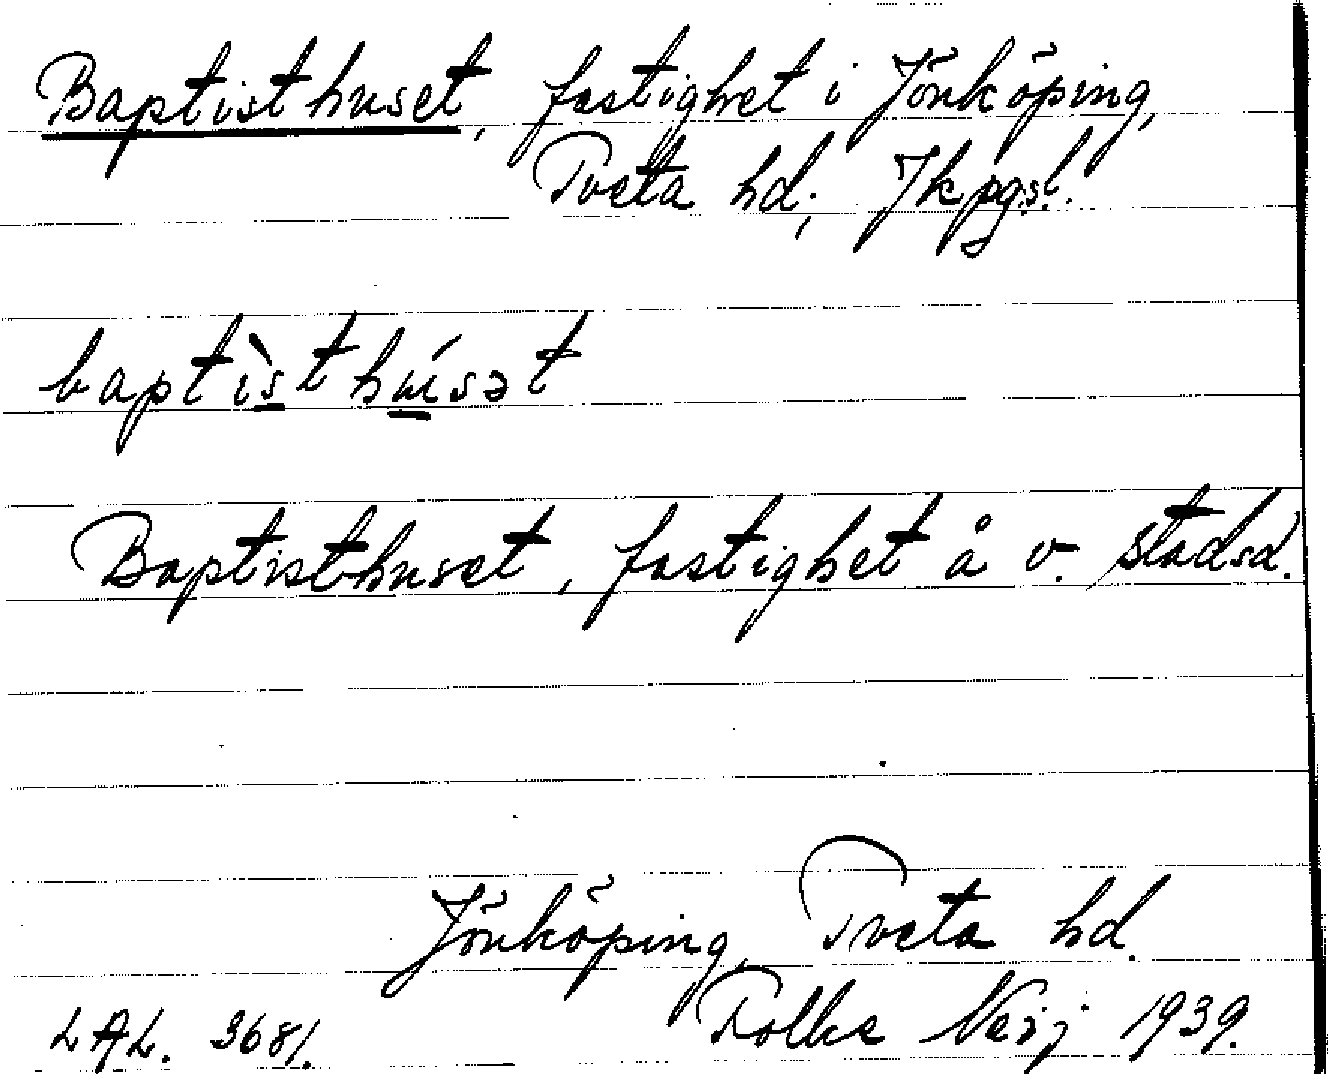 Baptisthuset, fastighet i Jönköping,
Tveta hd; Jkpgs l.
baptìsthúsət
Baptisthuset, fastighet å v. stadsd.
Jönköping, Tveta hd.
LAL. 3681. Folke 1939.